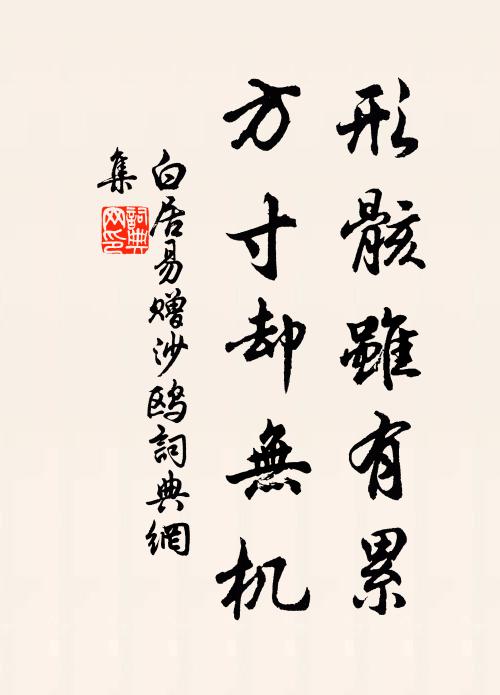 形骸雖有累
方寸却無机
白居易赠沙鸥詞典網
集
詞典
网印